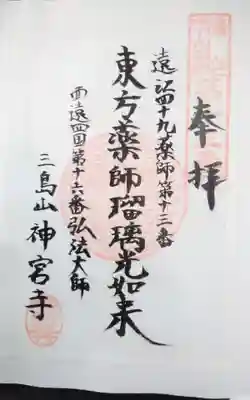 奉拝
遠江四十九薬師第十三番
東方薬師瑠璃光如来
西遠四国第十六番弘法大師
三鳥山神宮寺